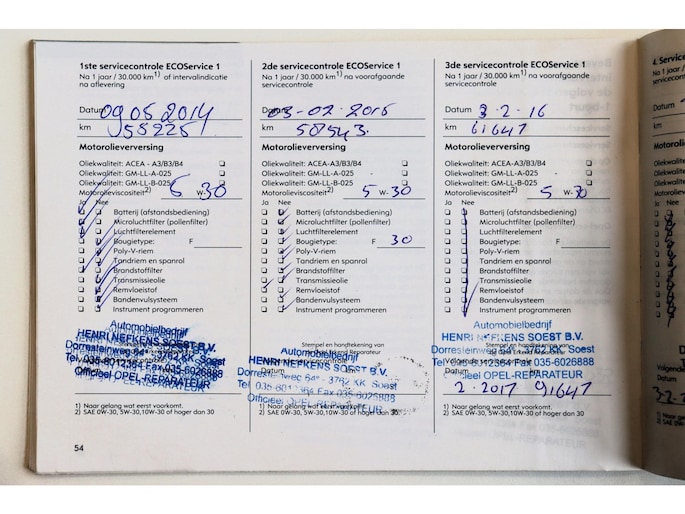 1ste servicecontrole ECOService 1
Na 1 jaar / 30.000 km1) of intervalindicatie
na aflevering
Datum 09 05 2014
km 55225
Motorolieverversing
Oliekwaliteit: ACEA - A3/B3/B4
Oliekwaliteit: GM-LL-A-025
Oliekwaliteit: GM-LL-B-025
Motorolieviscositeit2) W- 30
Ja Nee
Batterij (afstandsbediening)
Microluchtfilter (pollenfilter)
Luchtfilterelement
Bougietype: F
Poly-V-riem
Tandriem en spanrol
Brandstoffilter
Transmissieolie
Remvloeistof
Bandenvulsysteem
Instrument programmeren
Automobielbedrijf
HENRI NEFKENS SOEST B.V.
Dorresteinweg 64a - 3762 KK Soest
Tel. 035-6012364 Fax 035-6026888
Officieel OPEL-REPARATEUR
1) Naar gelang wat eerst voorkomt.
2) SAE 0W-30, 5W-30,10W-30 of hoger dan 30
54
2de servicecontrole ECOService 1
Na 1 jaar / 30.000 km1) na voorafgaande
servicecontrole
Datum 03-02-2015
km 58543
Motorolieverversing
Oliekwaliteit: ACEA - A3/B3/B4
Oliekwaliteit: GM-LL-A-025
Oliekwaliteit: GM-LL-B-025
Motorolieviscositeit2) 5 W-30
Ja Nee
Batterij (afstandsbediening)
Microluchtfilter (pollenfilter)
Luchtfilterelement
Bougietype: F 30
Poly-V-riem
Tandriem en spanrol
Brandstoffilter
Transmissieolie
Remvloeistof
Bandenvulsysteem
Instrument programmeren
Stempel en handtekening van
Automobielbedrijf
HENRI NEFKENS SOEST B.V.
Datum
Dorresteinweg 64a - 3762 KK Soest
Tel. 035-6012364 Fax 035-6026888
Officieel OPEL-REPARATEUR
1) Naar gelang wat eerst voorkomt.
2) SAE 0W-30, 5W-30,10W-30 of hoger dan 30
3de servicecontrole ECOService 1
Na 1 jaar / 30.000 km1) na voorafgaande
servicecontrole
Datum 3-2-16
km 61647
Motorolieverversing
Oliekwaliteit: ACEA - A3/B3/B4
Oliekwaliteit: GM-LL-A-025
Oliekwaliteit: GM-LL-B-025
Motorolieviscositeit2) 5 W-
Ja Nee
Batterij (afstandsbediening)
Microluchtfilter (pollenfilter)
Luchtfilterelement
Bougietype: F
Poly-V-riem
Tandriem en spanrol
Brandstoffilter
Transmissieolie
Remvloeistof
Bandenvulsysteem
Instrument programmeren
Stempel en handtekening van
Automobielbedrijf
HENRI NEFKENS SOEST B.V.
Dorresteinweg 64a - 3762 KK Soest
Tel. 035-6012364 Fax 035-6026888
Officieel OPEL-REPARATEUR
2-2017 91647
1) Naar gelang wat eerst voorkomt.
2) SAE 0W-30, 5W-30,10W-30 of hoger dan 30
4. Service
Na 1 jaar
Datum
km
Motorolie